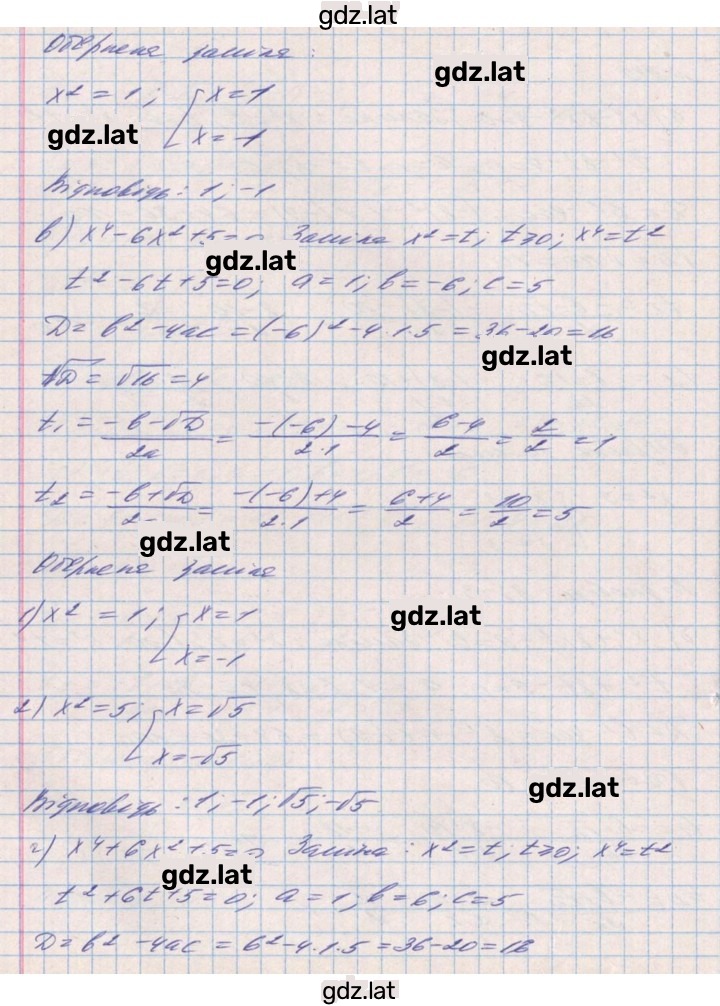 gdz.lat
Обернена заміна:
gdz.lat
x² = 1; [ x = 1
gdz.lat
x = -1
Відповідь: 1; -1
в) x⁴ - 6x² + 5 = 0 Заміна x² = t; t ≥ 0; x⁴ = t²
gdz.lat
t² - 6t + 5 = 0; a = 1; b = -6; c = 5
D = b² - 4ac = (-6)² - 4·1·5 = 36 - 20 = 16
gdz.lat
√D = √16 = 4
t₁ = (-b - √D)/2a = (-(-6) - 4)/(2·1) = (6 - 4)/2 = 2/2 = 1
t₂ = (-b + √D)/2- = (-(-6) + 4)/(2·1) = (6 + 4)/2 = 10/2 = 5
gdz.lat
Обернена заміна
1) x² = 1; [ x = 1
gdz.lat
x = -1
2) x² = 5; [ x = √5
x = -√5
gdz.lat
Відповідь: 1; -1; √5; -√5
г) x⁴ + 6x² + 5 = 0 Заміна: x² = t; t ≥ 0; x⁴ = t²
gdz.lat
t² + 6t + 5 = 0; a = 1; b = 6; c = 5
D = b² - 4ac = 6² - 4·1·5 = 36 - 20 = 16
gdz.lat